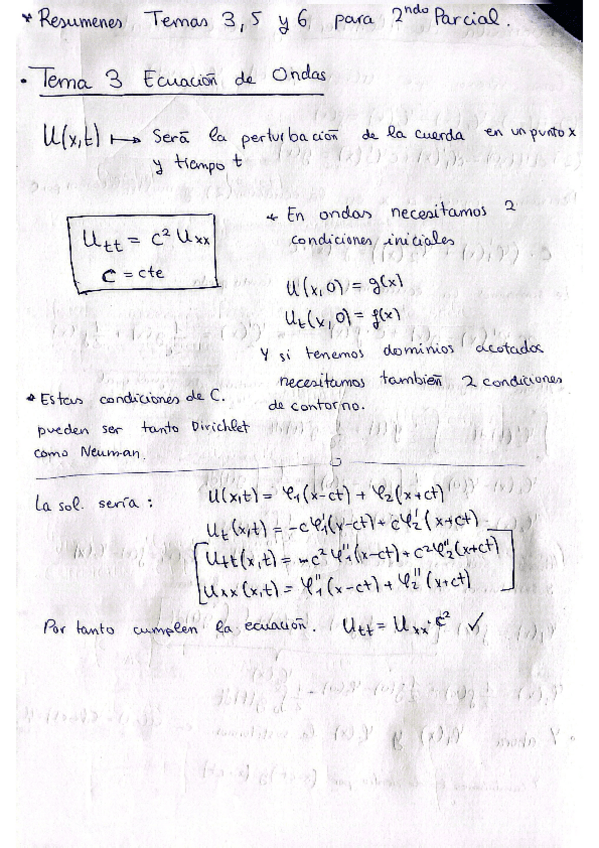 * Resumenes Temas 3, 5 y 6 para 2ndo Parcial.
• Tema 3 Ecuación de Ondas
U(x,t) ↦ Será la perturbación de la cuerda en un punto x
y tiempo t
Utt = c² Uxx
C = cte
* En ondas necesitamos 2
condiciones iniciales
U(x,0) = g(x)
Ut(x,0) = f(x)
Y si tenemos dominios acotados
necesitamos también 2 condiciones
de contorno.
* Estas condiciones de C.
pueden ser tanto Dirichlet
como Neuman.
La sol. sería:
U(x,t) = φ1(x-ct) + φ2(x+ct)
Ut(x,t) = -cφ1'(x-ct) + cφ2'(x+ct)
Utt(x,t) = c²φ1''(x-ct) + c²φ2''(x+ct)
Uxx(x,t) = φ1''(x-ct) + φ2''(x+ct)
Por tanto cumplen la ecuación. Utt = Uxx · c² ✓